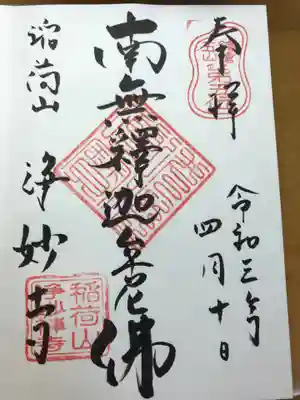 奉拝
令和三年
四月十日
南無釋迦牟尼佛
稲荷山
浄妙寺
稲荷山
浄妙禅寺